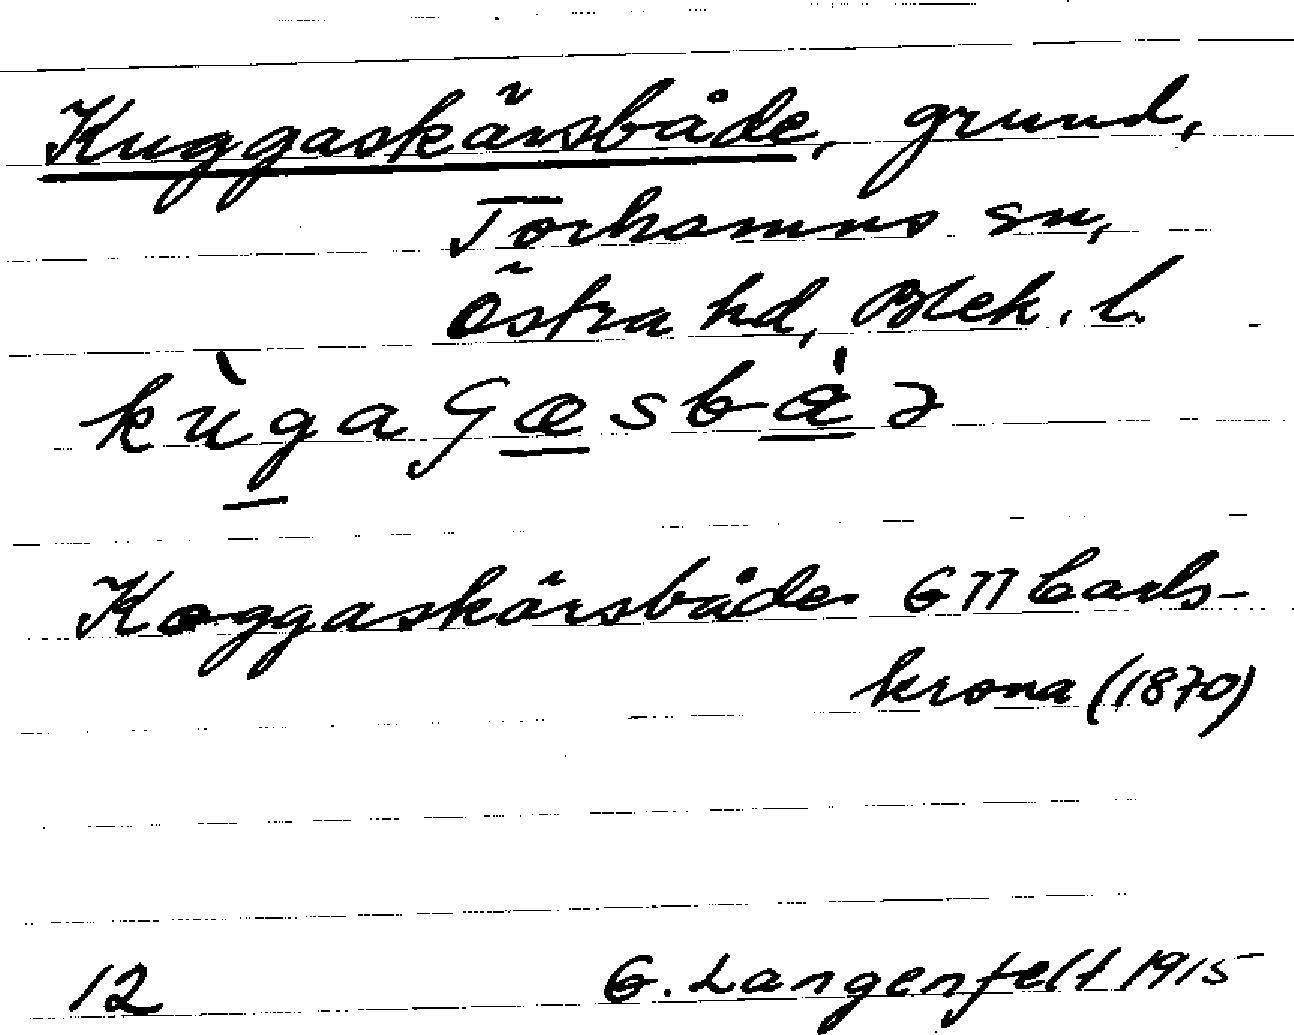 Kuggaskärsbåde, grund,
Torhamns sn,
Östra hd, Blek. l.
kùgaʃæsbåə
Koggaskärsbåde GK Carls-
krona (1870)
12 G. Langenfelt 1915